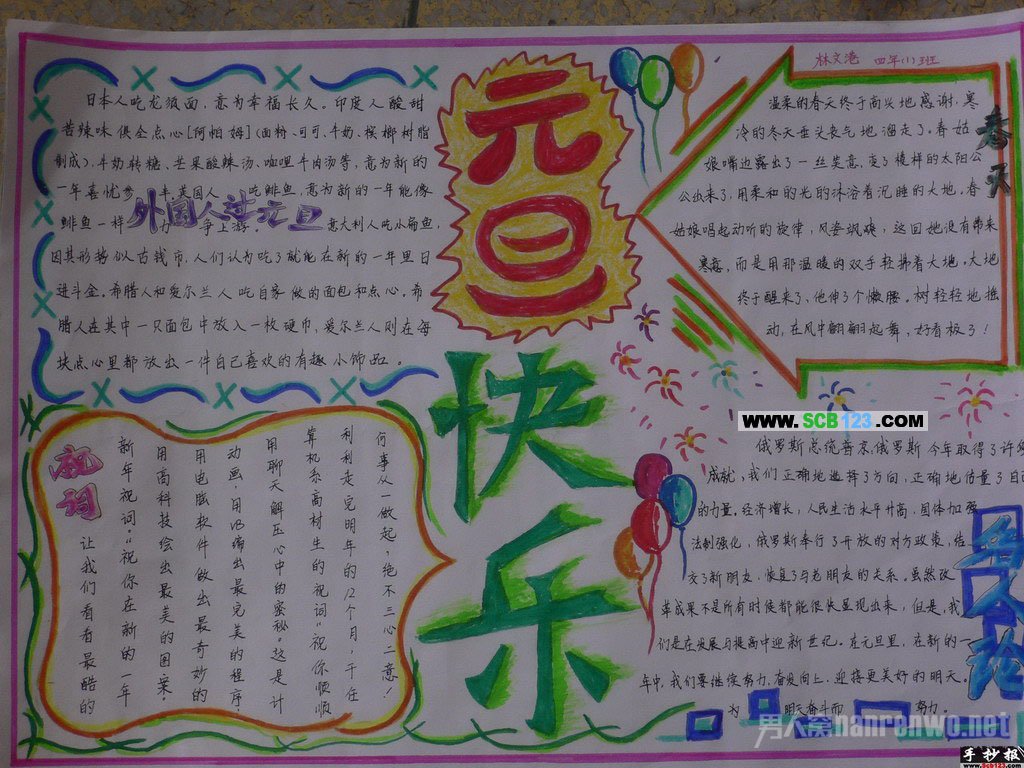 林文港 四年(1)班
元旦
快乐
日本人吃龙须面,意为幸福长久。印度人酸甜
苦辣味俱全点心[阿帕姆](面粉、可可、牛奶、槟榔树脂
制成)、牛奶转糖、芒果酸辣汤、咖喱牛肉汤等,意为新的
一年喜忧参 美国人 吃鲱鱼,意为新的一年能像
外国人过元旦
鲱鱼一样 力争上游。 意大利人吃小扁鱼,
因其形势似古钱币,人们认为吃了就能在新的一年里日
进斗金。希腊人和爱尔兰人吃自家做的面包和点心。希
腊人在其中一只面包中放入一枚硬币,爱尔兰人则在每
块点心里都放出一件自己喜欢的有趣小饰品。
春天
温柔的春天终于高兴地感谢,寒
冷的冬天垂头丧气地溜走了。春姑
娘嘴边露出了一丝笑意,变了模样的太阳公
公出来了,用柔和的光的沐浴着沉睡的大地。春
姑娘唱起动听的旋律,风姿飒爽,这回她没有带来
寒意,而是用那温暖的双手轻拂着大地。大地
终于醒来了,他伸了个懒腰。树轻轻地摇
动,在风中翩翩起舞,好看极了!
WWW.SCB123.COM
祝词
让我们看看最酷的
新年祝词:“祝你在新的一年
用高科技绘出最美的图案。
用电脑软件做出最奇妙的
动画,用VB编出最完美的程序
用聊天解压心中的寄秘。”这是计
算机系高材生的祝词“祝你顺顺
利利走完明年的12个月,千万
何事从一做起,绝不三心二意!
俄罗斯总统普京:俄罗斯今年取得了许多
成就,我们正确地选择了方向,正确地估量了自己
的力量。经济增长,人民生活水平升高,国体加强
法制强化,俄罗斯奉行了开放的对方政策,结
交了新朋友,恢复了与老朋友的关系。虽然改
革成果不是所有时候都能很快显现出来,但是,我
们是在发展与提高中迎新世纪。在元旦里,在新的一
年中,我们要继续努力,奋发向上,迎接更美好的明天。
为 明天奋斗而 努力。
名人论
男人窝nanrenwo.net
手抄报
www.SCB123.com